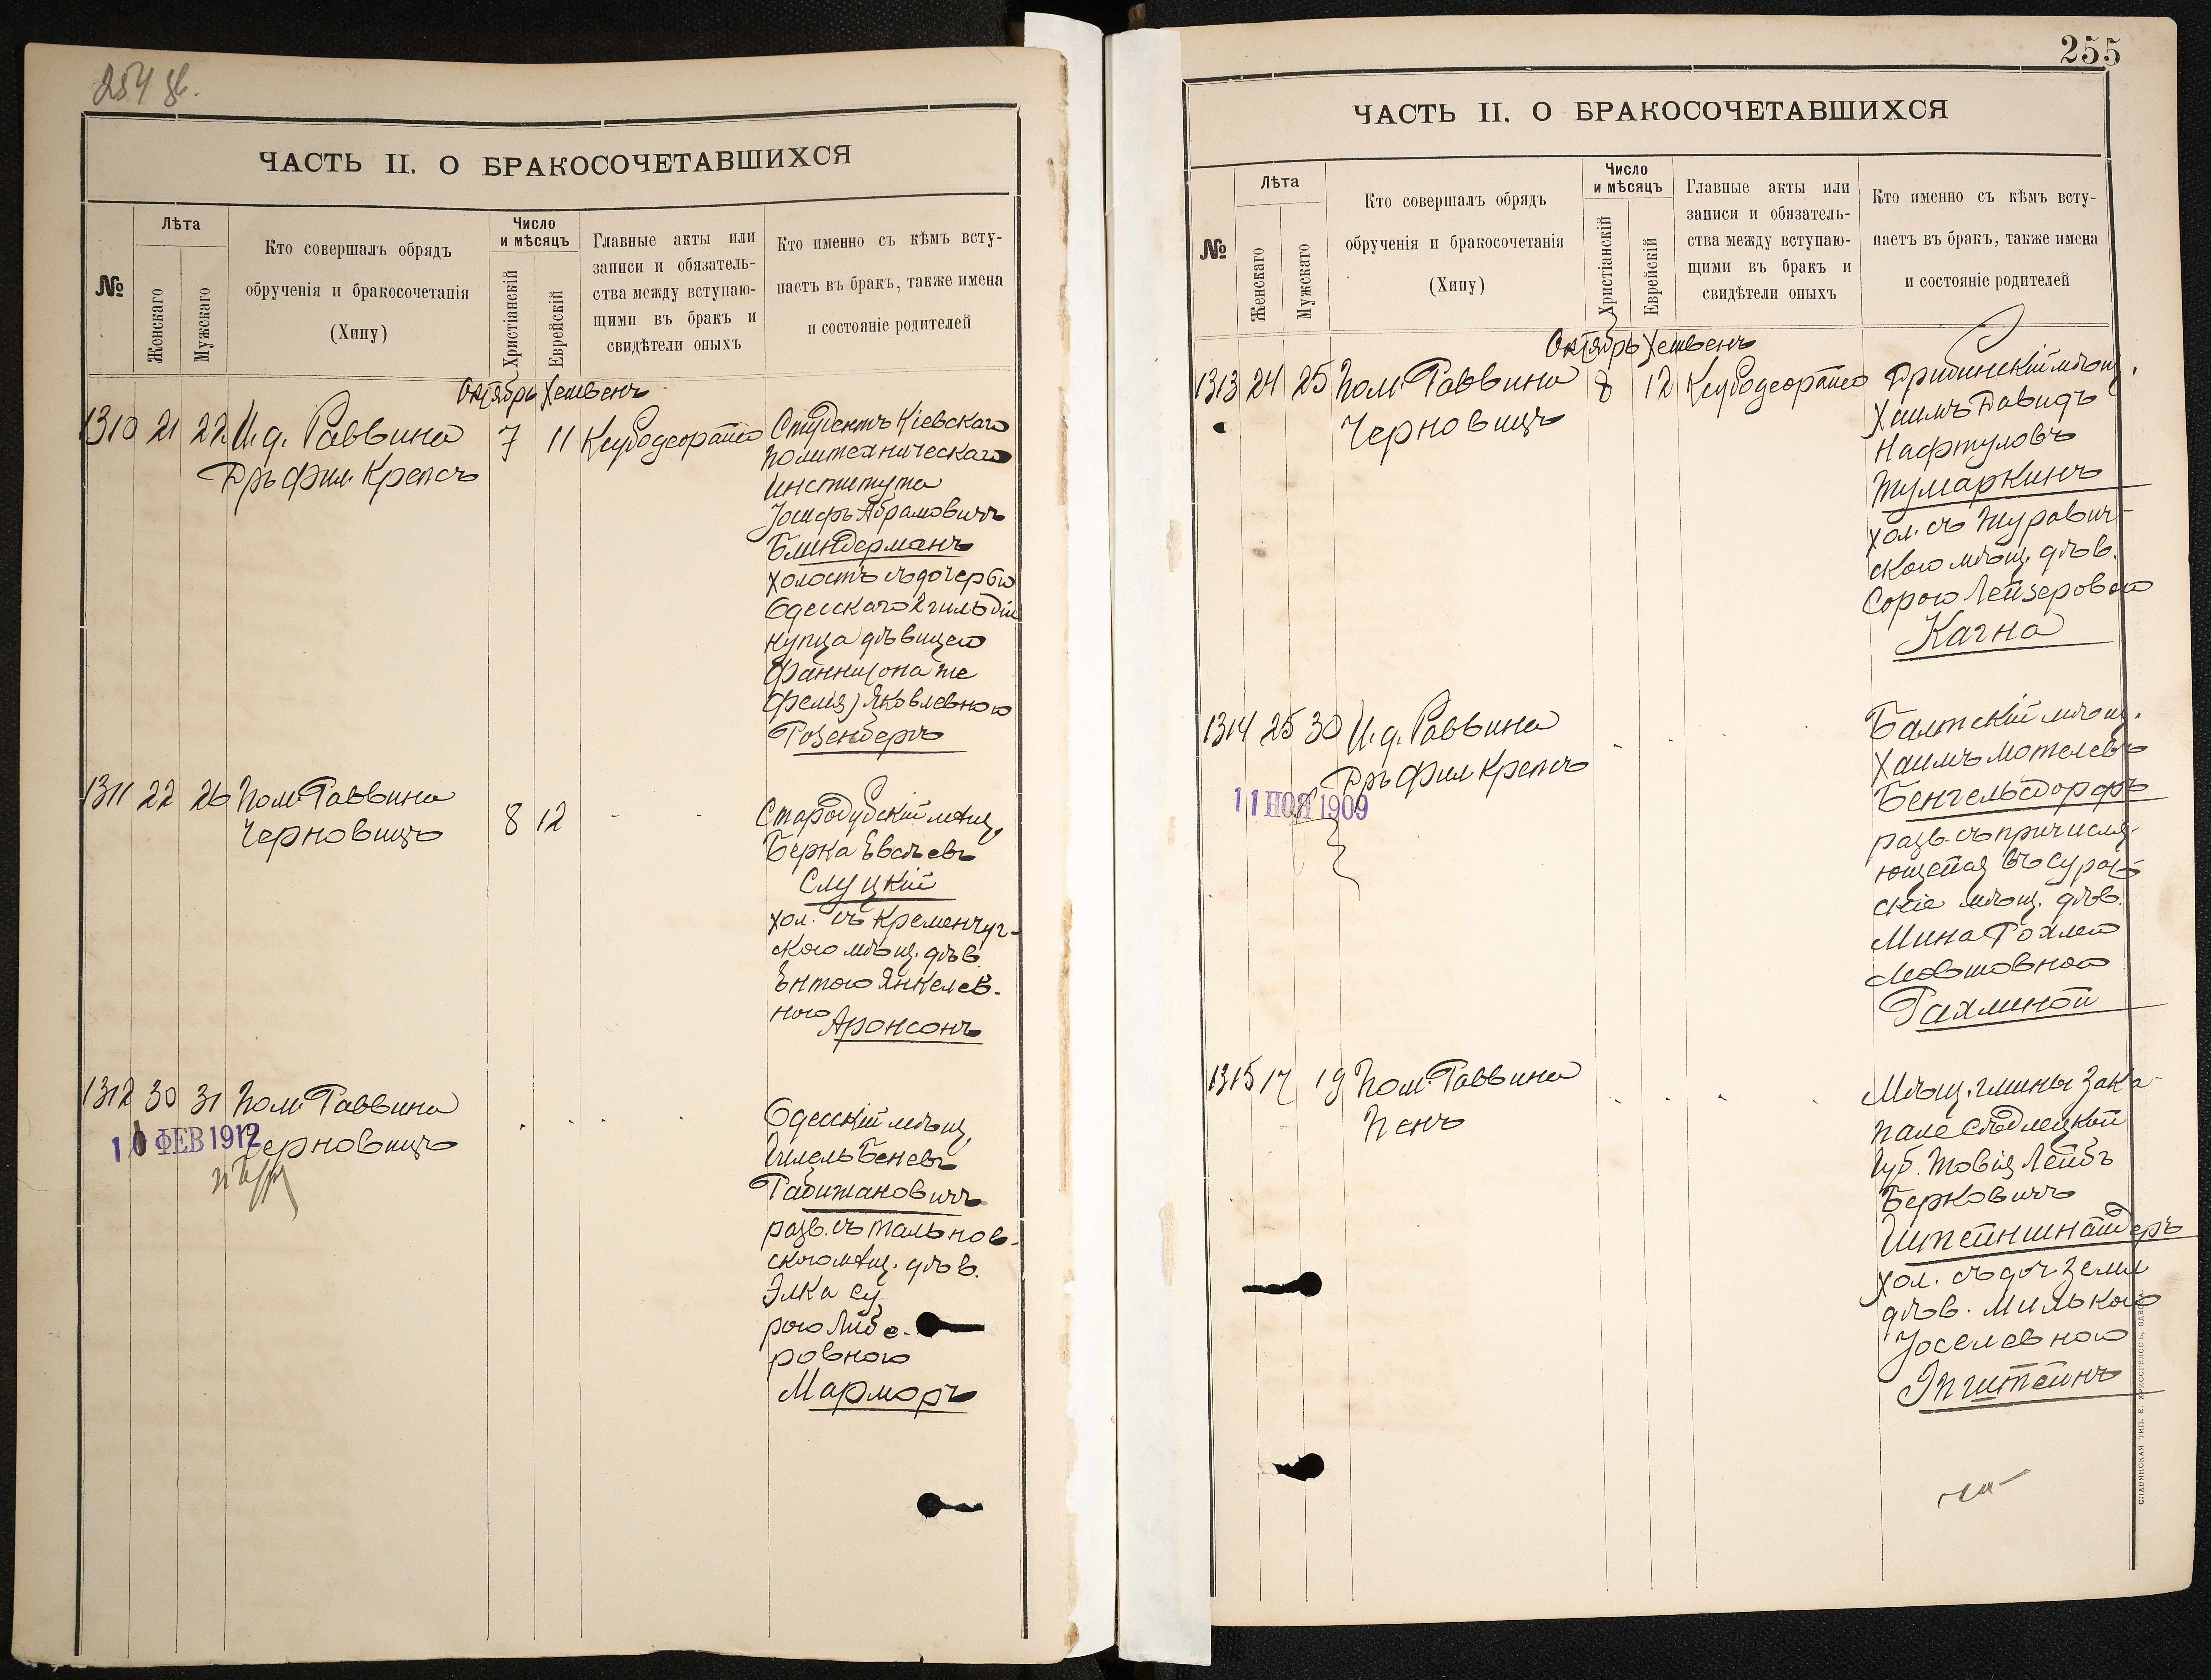 254 об.
ЧАСТЬ II. О БРАКОСОЧЕТАВШИХСЯ
№
Лѣта
Женскаго
Мужскаго
Кто совершалъ обрядъ
обрученія и бракосочетанія
(Хипу)
Число
и мѣсяцъ
Христіанскій
Еврейскій
Главные акты или
записи и обязатель-
ства между вступаю-
щими въ бракъ и
свидѣтели оныхъ
Кто именно съ кѣмъ всту-
паетъ въ бракъ, также имена
и состояніе родителей
Октябрь Хешвенъ
1310 21 22 И. д. Раввина
Д-ръ Фил. Крепсъ
7 11
Студентъ Кіевскаго
Политехническаго
Института
Іосифъ Абрамовичъ
Блиндерманъ
холостъ съ дочерью
Одесскаго 2 гильдіи
купца дѣвицею
Фанни (она же
Фейга) Яковлевною
Розенбергъ
1311 22 26 Пом. Раввина
Черновицъ
8 12 - -
Стародубскій мѣщ.
Берка
Слуцкій
хол. съ Кременчуг-
скою мѣщ. дѣв.
Ентою Янкелев-
ною Аронсонъ
1312 30 31 Пом. Раввина
Черновицъ
10 ФЕВ 1912
Одесскій мѣщ.
Гилель Беневъ
Рабижановичъ
разв. съ Тальнов-
скою мѣщ. дѣв.
Элка Су
рою Либе-
ровною
Марморъ
255
ЧАСТЬ II. О БРАКОСОЧЕТАВШИХСЯ
№
Лѣта
Женскаго
Мужскаго
Кто совершалъ обрядъ
обрученія и бракосочетанія
(Хипу)
Число
и мѣсяцъ
Христіанскій
Еврейскій
Главные акты или
записи и обязатель-
ства между вступаю-
щими въ бракъ и
свидѣтели оныхъ
Кто именно съ кѣмъ всту-
паетъ въ бракъ, также имена
и состояніе родителей
Октябрь Хешвенъ
1313 24 25 Пом. Раввина
Черновицъ
8 12
мѣщ.
Хаимъ Давидъ
Нафтуловъ
Тумаркинъ
хол. съ Журавич-
скою мѣщ. дѣв.
Сорою Лейзеровою
Кагна
1314 25 30 И. д. Раввина
Д-ръ Фил. Крепсъ
11 НОЯ 1909
Балтскій мѣщ.
Хаимъ Мотелевъ
Бенгельсдорфъ
разв. съ причисля-
ющейся въ Сураж-
скіе мѣщ. дѣв.
Мина Рохлею
Мовшовною
Рахлиной
1315 17 19 Пом. Раввина
Пенъ
Мѣщ. гмины Зака-
напе Сѣдлецкой
Губ. Товія Лейбъ
Берковичъ
Штейншнайдеръ
хол. съ доч. земл
дѣв. Милькою
Іоселевною
Эпштейнъ
СЛАВЯНСКАЯ ТИП. Е. ХРИСОГЕЛОСЪ, ОДЕССА